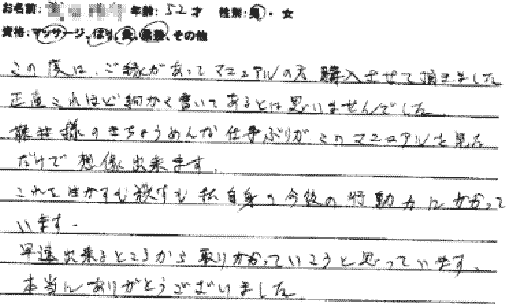 お名前: 年齢: 52才 性別: 男・女
資格: マッサージ、はり、灸、柔整、その他
この度は、ご縁があってマニュアルの方購入させて頂きました
正直これほど細かく書いてあるとは思いませんでした
様のきちょうめんな仕事ぶりがこのマニュアルを見る
だけで想像出来ます。
これを活かすも殺すも私自身の今後の行動力にかかって
います。
早速出来るところから取りかかっていこうと思っています。
本当にありがとうございました。